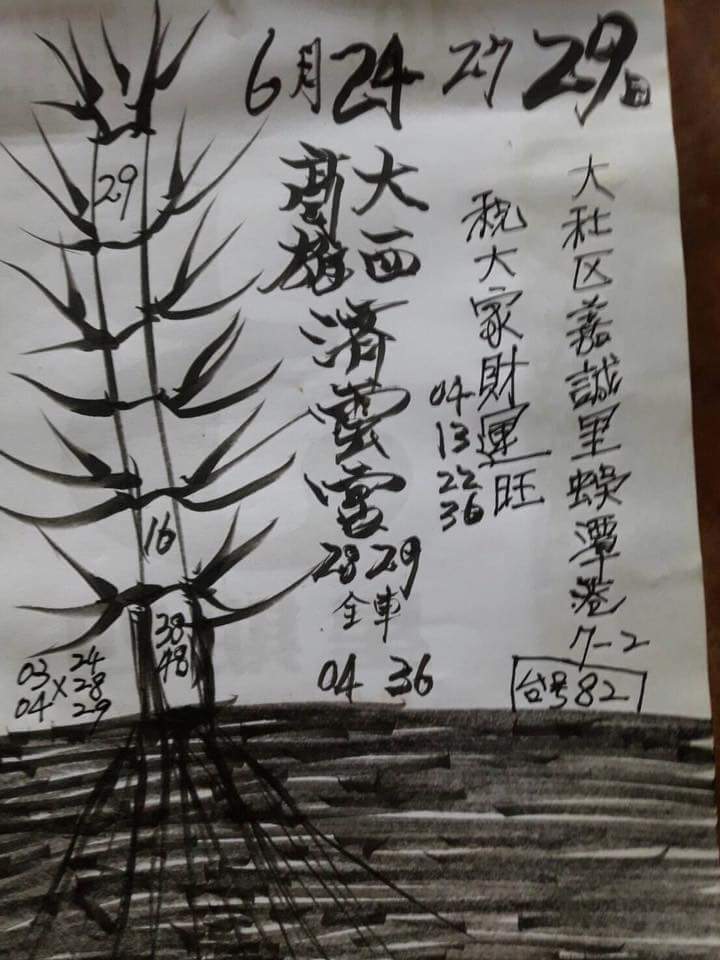 6月24 27 29日
大社区嘉誠里蜈潭巷7-2
台号82
祝大家財運旺
04
13
22
36
大西
高雄
濟雲宮
28 29
全車
04 36
29
16
38
48
03
04
X
24
28
29